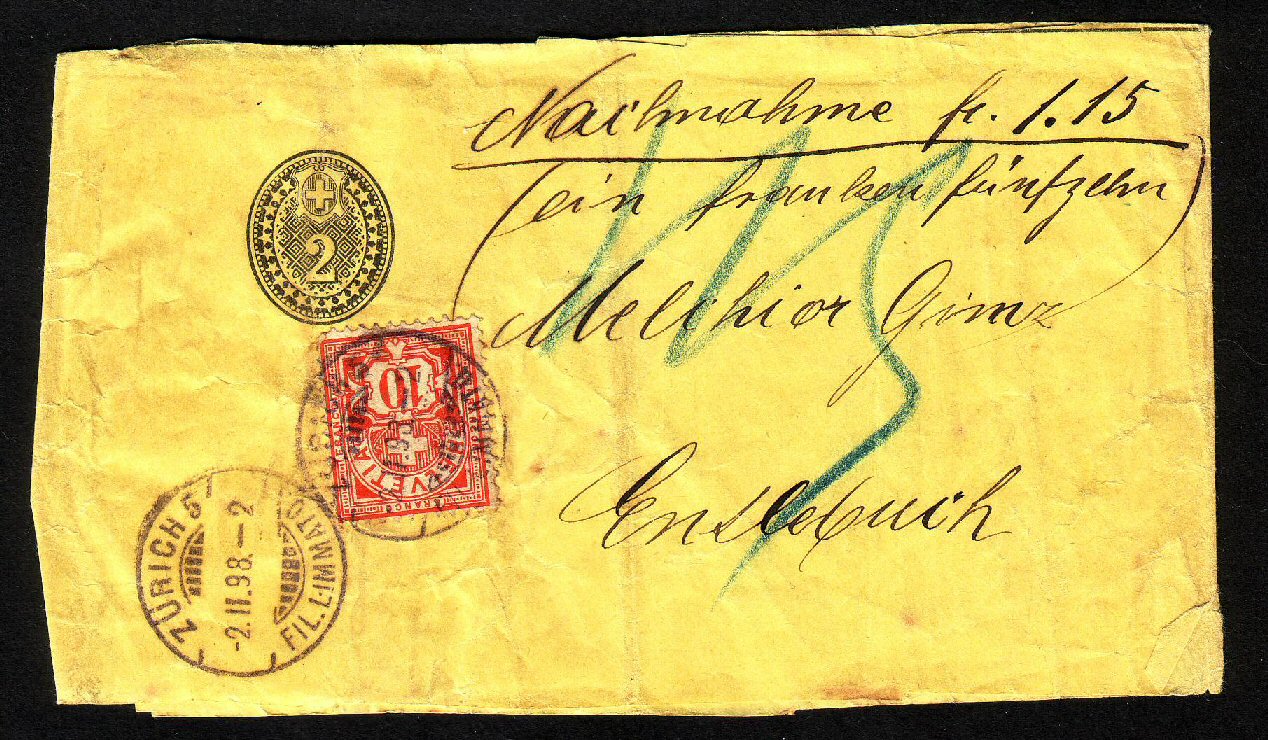 Nachnahme fr. 1.15
(ein franken fünfzehn)
2
Melchior
10
HELVETIA
FRANCO
Entlebuch
ZÜRICH 5
-2.II.98.-2
FIL. LIMMATQ.